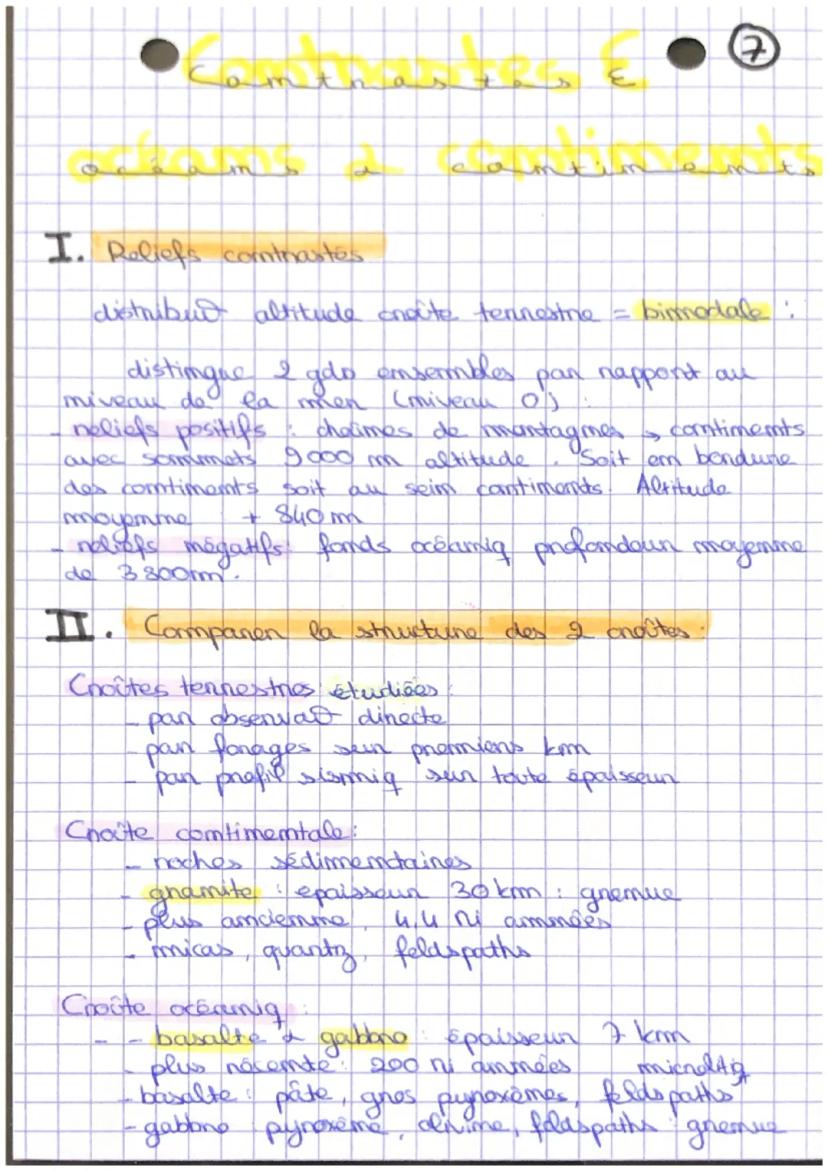 7
Contrastes E
océans & continents
I. Reliefs contrastés
distribut° altitude croûte terrestre = bimodale :
distingue 2 gds ensembles par rapport au
niveau de la mer (niveau 0) :
- reliefs positifs : chaînes de montagnes → continents
avec sommets 9000 m altitude. Soit en bordure
des continents soit au sein continents. Altitude
moyenne + 840 m
- reliefs négatifs : fonds océaniq profondeur moyenne
de 3800m.
II. Comparer la structure des 2 croûtes.
Croûtes terrestres étudiées :
- par observat° directe
- par forages sur premiers km
- par profil sismiq sur toute épaisseur
Croûte continentale :
- roches sédimentaires
- granite : épaisseur 30 km : grenue
- plus ancienne, 4,4 Mi années
- micas, quartz, feldspaths
Croûte océaniq :
- - basalte & gabbro : épaisseur 7 km
- plus récente : 200 Mi années microlitiq
- basalte : pâte, gros pyroxèmes, feldspaths
- gabbro pyroxème, olivine, feldspaths : grenue